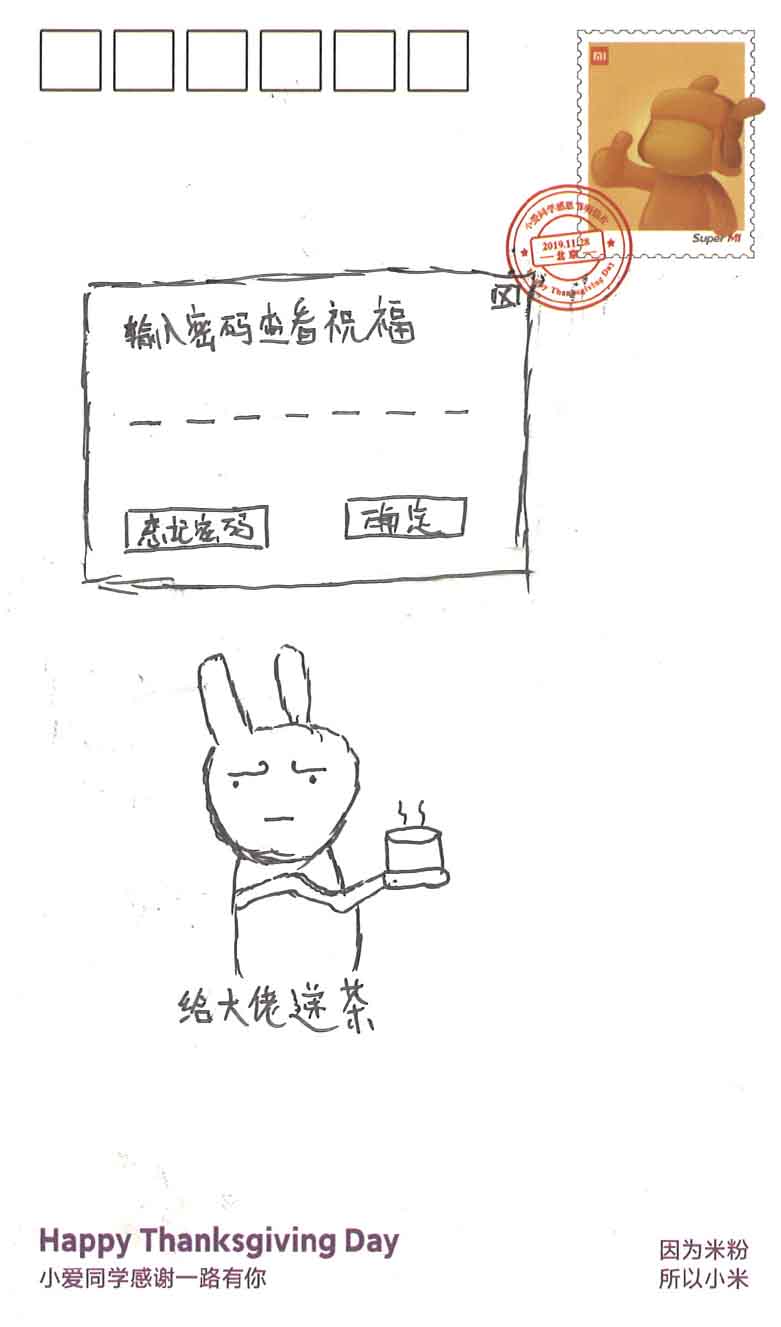 MI
Super MI
小爱同学感恩节明信片
2019.11.28
北京
Happy Thanksgiving Day
输入密码查看祝福
忘记密码
确定
给大佬递茶
Happy Thanksgiving Day
小爱同学感谢一路有你
因为米粉
所以小米